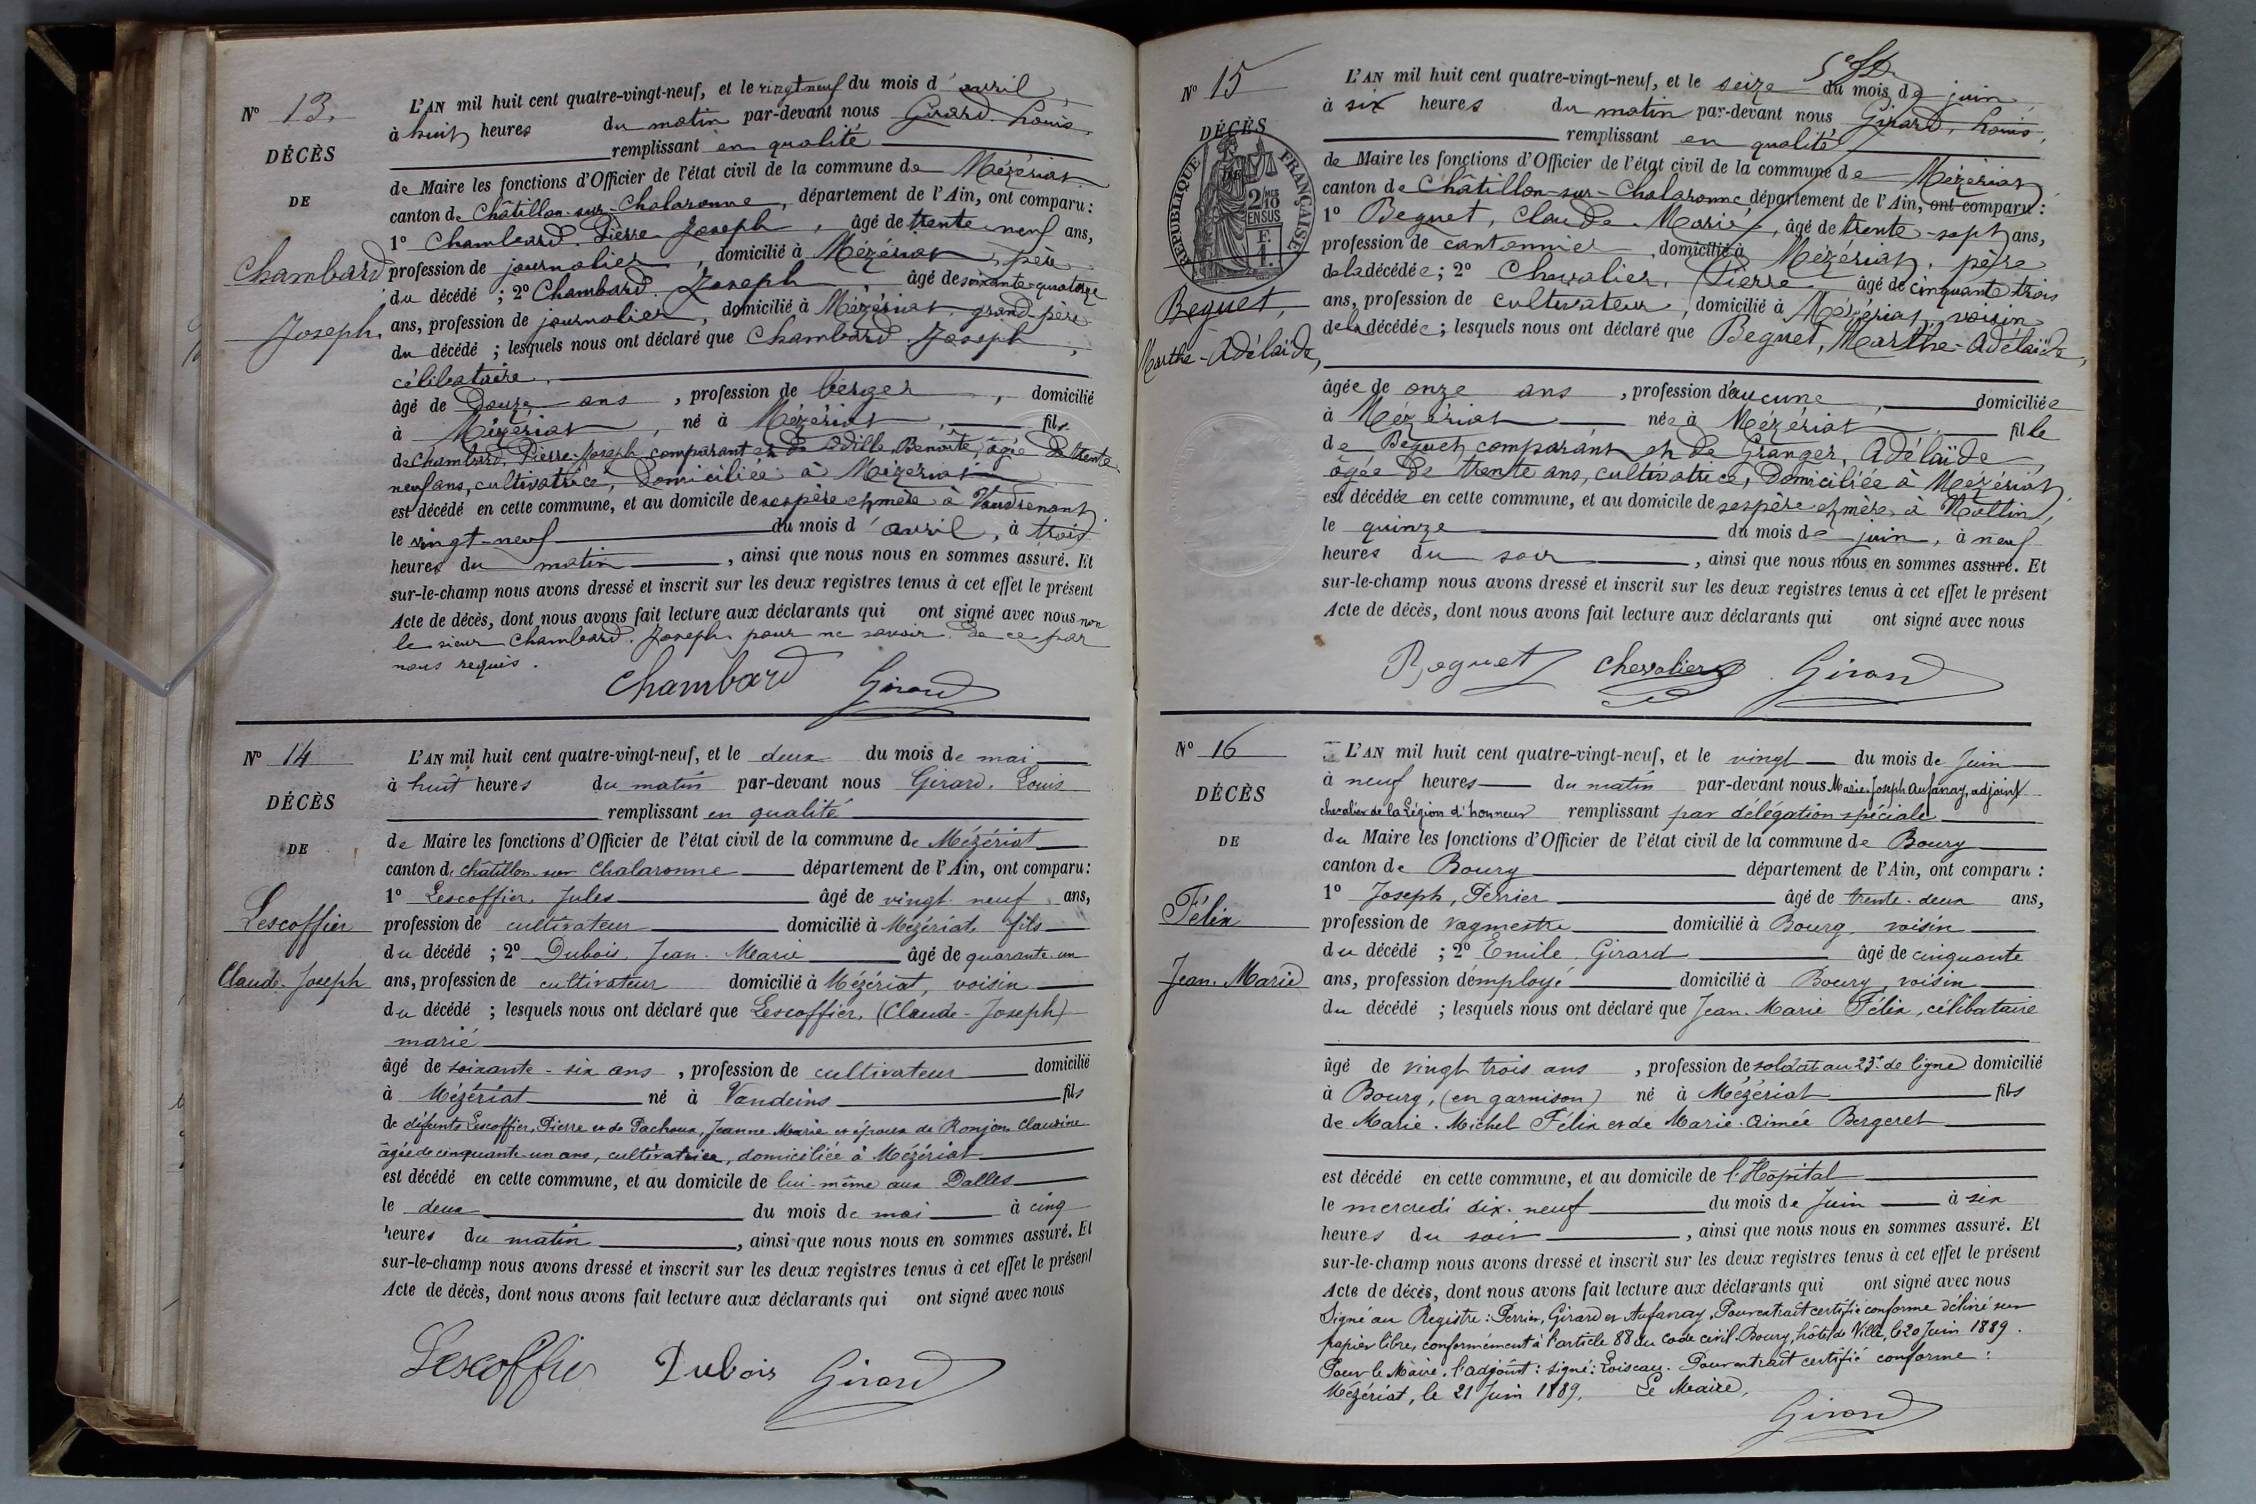 N° 13.
DÉCÈS
DE
Chambard
Joseph.
L'AN mil huit cent quatre-vingt-neuf, et le vingt neuf du mois d'avril,
à huit heures du matin par-devant nous Girard. Louis.
remplissant en qualité
de Maire les fonctions d'Officier de l'état civil de la commune de Mézériat.
canton de Châtillon-sur-Chalaronne, département de l'Ain, ont comparu :
1° Chambard. Pierre Joseph, âgé de trente-neuf ans,
profession de journalier, domicilié à Mézériat, père
du décédé ; 2° Chambard. Joseph, âgé de soixante-quatorze
ans, profession de journalier, domicilié à Mézériat. grand-père
du décédé ; lesquels nous ont déclaré que Chambard. Joseph,
célibataire,
âgé de douze ans, profession de berger, domicilié
à Mézériat, né à Mézériat, fils
de Chambard, Pierre-Joseph, comparant et de Benoîte, âgée de trente
neuf ans, cultivatrice, domiciliée à Mézériat
est décédé en cette commune, et au domicile de ses père et mère à Vaudrenant
le vingt-neuf du mois d'avril, à trois
heures du matin, ainsi que nous nous en sommes assuré. Et
sur-le-champ nous avons dressé et inscrit sur les deux registres tenus à cet effet le présent
Acte de décès, dont nous avons fait lecture aux déclarants qui ont signé avec nous non
le sieur Chambard. Joseph pour ne savoir. De ce par
nous requis.
Chambard Girard
N° 14
DÉCÈS
DE
Lescoffier
Claude-Joseph
L'AN mil huit cent quatre-vingt-neuf, et le deux du mois de mai
à huit heures du matin par-devant nous Girard. Louis
remplissant en qualité
de Maire les fonctions d'Officier de l'état civil de la commune de Mézériat
canton de Châtillon sur Chalaronne département de l'Ain, ont comparu :
1° Lescoffier, Jules âgé de vingt-neuf ans,
profession de cultivateur domicilié à Mézériat fils
du décédé ; 2° Dubois, Jean-Marie âgé de quarante-un
ans, profession de cultivateur domicilié à Mézériat, voisin
du décédé ; lesquels nous ont déclaré que Lescoffier, (Claude-Joseph)
marié
âgé de soixante-six ans, profession de cultivateur domicilié
à Mézériat né à Vandeins fils
de défunts Lescoffier, Pierre et de Pachoux, Jeanne-Marie et époux de Ronjon Claudine
âgée de cinquante-un ans, cultivatrice, domiciliée à Mézériat
est décédé en cette commune, et au domicile de lui-même aux Dalles
le deux du mois de mai à cinq
heures du matin, ainsi que nous nous en sommes assuré. Et
sur-le-champ nous avons dressé et inscrit sur les deux registres tenus à cet effet le présent
Acte de décès, dont nous avons fait lecture aux déclarants qui ont signé avec nous
Lescoffier Dubois Girard
N° 15
DÉCÈS
DE
RÉPUBLIQUE FRANÇAISE
2/10 EN SUS
Beguet,
Marthe-Adélaïde,
L'AN mil huit cent quatre-vingt-neuf, et le seize du mois de juin,
à six heures du matin par-devant nous Girard, Louis,
remplissant en qualité
de Maire les fonctions d'Officier de l'état civil de la commune de Mézériat
canton de Châtillon-sur-Chalaronne, département de l'Ain, ont comparu :
1° Beguet, Claude-Marie, âgé de trente-sept ans,
profession de cantonnier, domicilié à Mézériat, père
de la décédée ; 2° Chevalier, Pierre âgé de cinquante trois
ans, profession de cultivateur, domicilié à Mézériat, voisin
de la décédée ; lesquels nous ont déclaré que Beguet, Marthe-Adélaïde,
âgée de onze ans, profession d'aucune, domiciliée
à Mézériat née à Mézériat fille
de Beguet comparant et de Granger, Adélaïde
âgée de trente ans, cultivatrice, domiciliée à Mézériat,
est décédée en cette commune, et au domicile de ses père et mère, à
le quinze du mois de juin, à neuf
heures du soir, ainsi que nous nous en sommes assuré. Et
sur-le-champ nous avons dressé et inscrit sur les deux registres tenus à cet effet le présent
Acte de décès, dont nous avons fait lecture aux déclarants qui ont signé avec nous
Beguet Chevalier Girard
N° 16
DÉCÈS
DE
Félix
Jean-Marie
L'AN mil huit cent quatre-vingt-neuf, et le vingt du mois de Juin
à neuf heures du matin par-devant nous Marie-Joseph Aufanay, adjoint
chevalier de la Légion d'honneur remplissant par délégation spéciale
du Maire les fonctions d'Officier de l'état civil de la commune de Bourg
canton de Bourg département de l'Ain, ont comparu :
1° Joseph, Perrier âgé de trente-deux ans,
profession de vagmestre domicilié à Bourg, voisin
du décédé ; 2° Emile Girard âgé de cinquante
ans, profession d'employé domicilié à Bourg, voisin
du décédé ; lesquels nous ont déclaré que Jean-Marie Félix, célibataire
âgé de vingt trois ans, profession de soldat au 23e de ligne domicilié
à Bourg, (en garnison) né à Mézériat fils
de Marie-Michel Félix et de Marie-Aimée Bergeret
est décédé en cette commune, et au domicile de l'Hôpital
le mercredi dix-neuf du mois de Juin à six
heures du soir, ainsi que nous nous en sommes assuré. Et
sur-le-champ nous avons dressé et inscrit sur les deux registres tenus à cet effet le présent
Acte de décès, dont nous avons fait lecture aux déclarants qui ont signé avec nous
Signé au Registre : Perrier, Girard et Aufanay, Pour extrait certifié conforme délivré sur
papier libre, conformément à l'article 88 du code civil. Bourg, hôtel de Ville, le 20 Juin 1889.
Pour le Maire, l'adjoint : signé : Loiseau. Pour extrait certifié conforme :
Mézériat, le 21 Juin 1889. Le Maire,
Girard